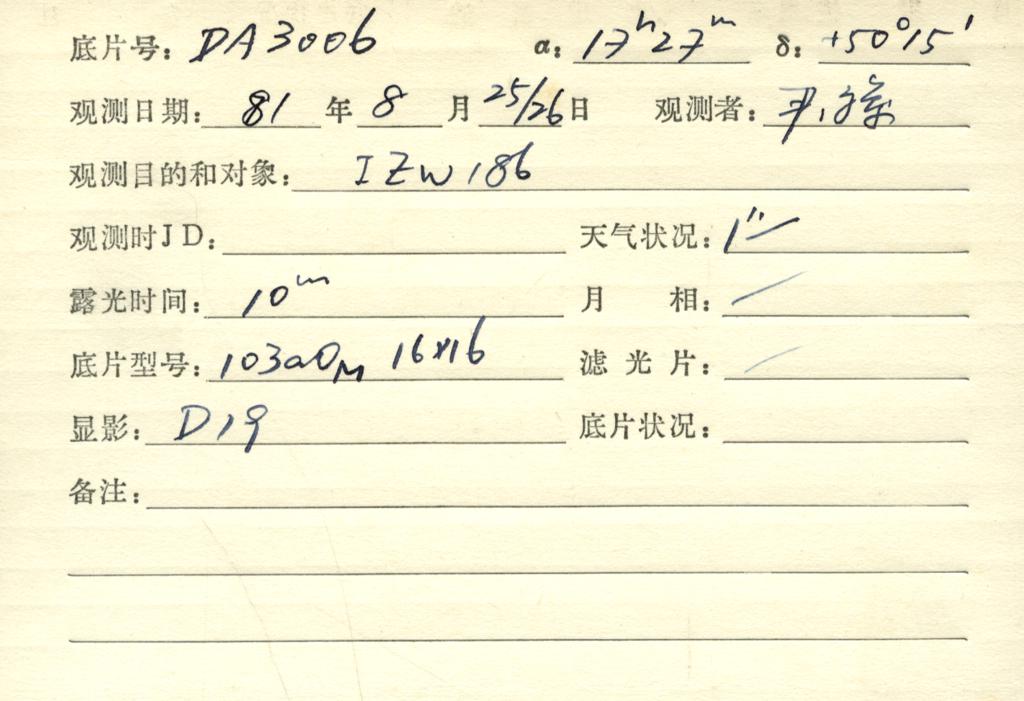 底片号: DA3006 α: 17ʰ27ᵐ δ: +50°15′
观测日期: 81 年 8 月 25/26 日 观测者: 尹
观测目的和对象: IZw186
观测时JD: 天气状况: 1″
露光时间: 10ᵐ 月 相: /
底片型号: 103aOM 16×16 滤光片: /
显影: D19 底片状况:
备注: